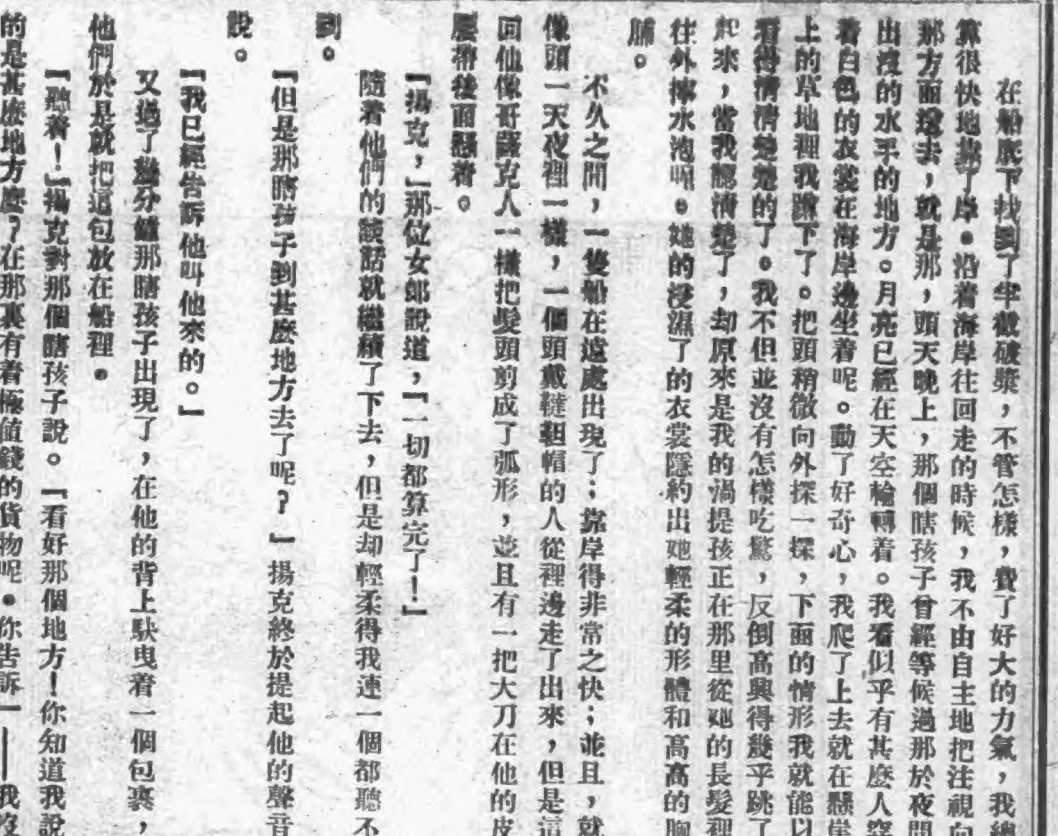 在船底下找到了半截破槳，不管怎樣，費了好大的力氣，我總
算很快地靠了岸。沿着海岸往回走的時候，我不由自主地把注視向
那方面望去，就是那，頭天晚上，那個瞎孩子曾經等候過那於夜間
出沒的水手的地方。月亮已經在天空輪轉着。我看似乎有甚麼人穿
着白色的衣裳在海岸邊坐着呢。動了好奇心，我爬了上去就在懸崖
上的草地裡我蹲下了。把頭稍微向外探一探，下面的情形我就能以
看得清清楚楚的了。我不但並沒有怎樣吃驚，反倒高興得幾乎跳了
起來，當我認清楚了，却原來是我的渦提孩正在那里從她的長髮裡
往外擰水泡呢。她的浸濕了的衣裳隱約出她輕柔的形體和高高的胸
脯。
不久之間，一隻船在遠處出現了；靠岸得非常之快；並且，就
像頭一天夜裡一樣，一個頭戴韃靼帽的人從裡邊走了出來，但是這
回他像哥薩克人一樣把髮頭剪成了弧形，並且有一把大刀在他的皮
腰帶後面懸着。
『揚克，』那位女郎說道，『一切都算完了！』
隨着他們的談話就繼續了下去，但是却輕柔得我連一個都聽不
到。
『但是那瞎孩子到甚麼地方去了呢？』揚克終於提起他的聲音
說。
『我已經告訴他叫他來的。』
又過了幾分鐘那瞎孩子出現了，在他的背上馱曳着一個包裹，
他們於是就把這包放在船裡。
『聽着！』揚克對那個瞎孩子說。『看好那個地方！你知道我說
的是甚麼地方麼？在那裏有着極值錢的貨物呢。你告訴』——我沒